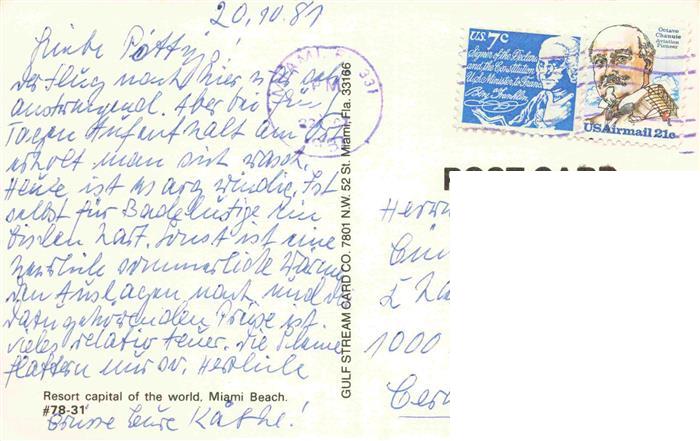 20.10.81
Liebe
Der Flug nach hier war sehr
anstrengend. Aber bei fünf
Tagen Aufenthalt am Ort
erholt man sich rasch.
Heute ist es arg windig. Ist
selbst für Badelustige ein
bischen hart. Sonst ist eine
herrlich sommerliche Wärme
Den Auslagen nach und
dazugehörenden Preise ist
vieles relativ teuer. Die
flattern nur so. Herzliche
Grüsse Eure Käthe!
Resort capital of the world, Miami Beach.
#78-31
GULF STREAM CARD CO. 7801 N.W. 52 St. Miami, Fla. 33166
MIAMI, F 331
PM
U.S. 7c
Signer of the Declaration
and the Constitution
U.S. Minister to France
Benj Franklin
Octave
Chanute
Aviation
Pioneer
USAirmail 21c
POST CARD
Herrn
1000